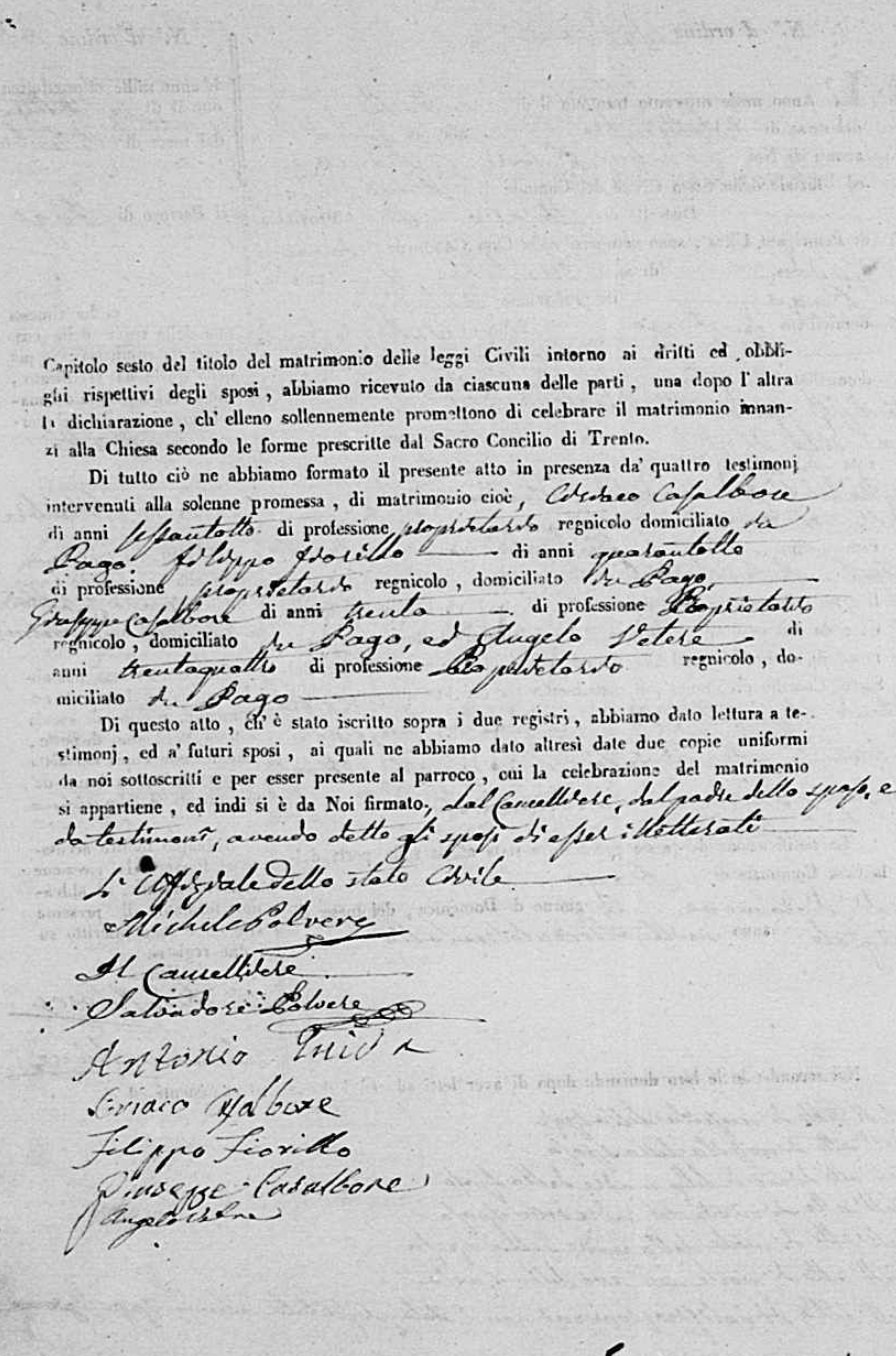 Capitolo sesto del titolo del matrimonio delle leggi Civili intorno ai dritti ed obbli-
ghi rispettivi degli sposi, abbiamo ricevuto da ciascuna delle parti, una dopo l'altra
la dichiarazione, ch'elleno sollennemente promettono di celebrare il matrimonio innan-
zi alla Chiesa secondo le forme prescritte dal Sacro Concilio di Trento.
Di tutto ciò ne abbiamo formato il presente atto in presenza da' quattro testimonj
intervenuti alla solenne promessa, di matrimonio cioè, Ciriaco Casalbore
di anni sessantotto di professione proprietario regnicolo domiciliato in
Pago. Filippo Fiorillo di anni quarantotto
di professione proprietario regnicolo, domiciliato in Pago,
Giuseppe Casalbore di anni trenta di professione Proprietario
regnicolo, domiciliato in Pago, ed Angelo Vetere di
anni trentaquattro di professione Proprietario regnicolo, do-
miciliato in Pago
Di questo atto, ch'è stato iscritto sopra i due registri, abbiamo dato lettura a te-
stimonj, ed a' futuri sposi, ai quali ne abbiamo dato altresì date due copie uniformi
da noi sottoscritti e per esser presente al parroco, cui la celebrazione del matrimonio
si appartiene, ed indi si è da Noi firmato, dal Cancelliere, dal padre dello sposo, e
da testimonj, avendo detto gli sposi di esser illetterati
L'Uffiziale dello stato Civile
Michele Polvere
Il Cancelliere
Salvadore Polvere
Antonio
Ciriaco Casalbore
Filippo Fiorillo
Giuseppe Casalbore
Angelo Vetere